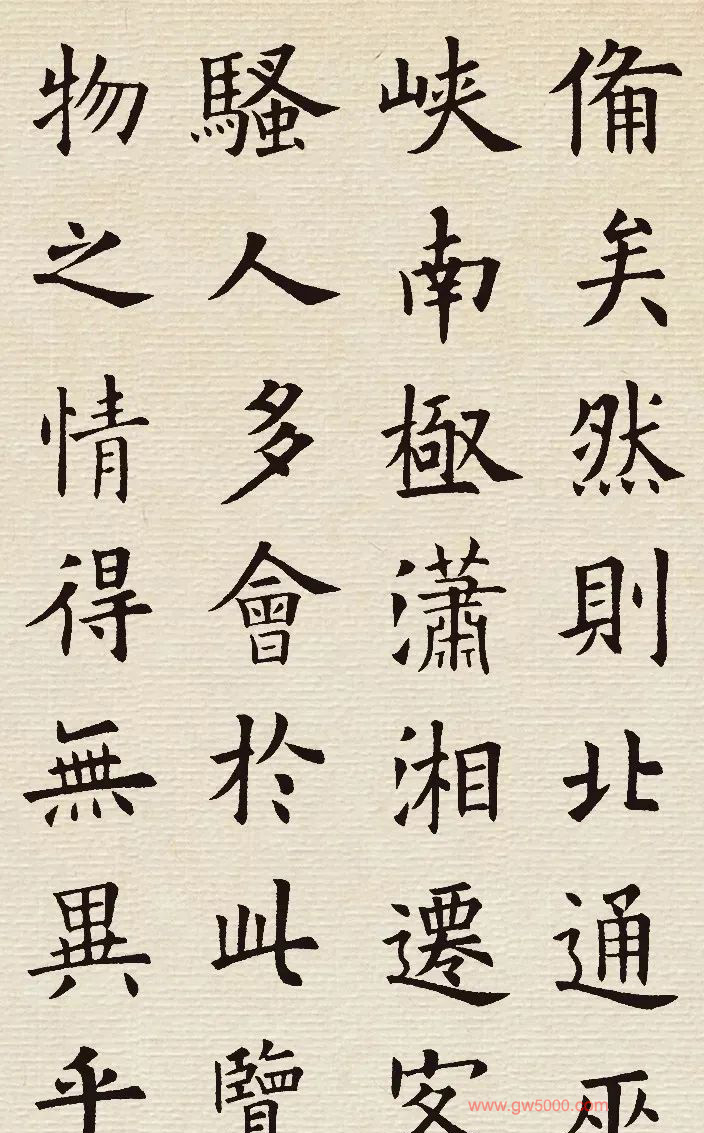 備矣然則北通巫
峽南極瀟湘遷客
騷人多會於此覽
物之情得無異乎
www.gw5000.com